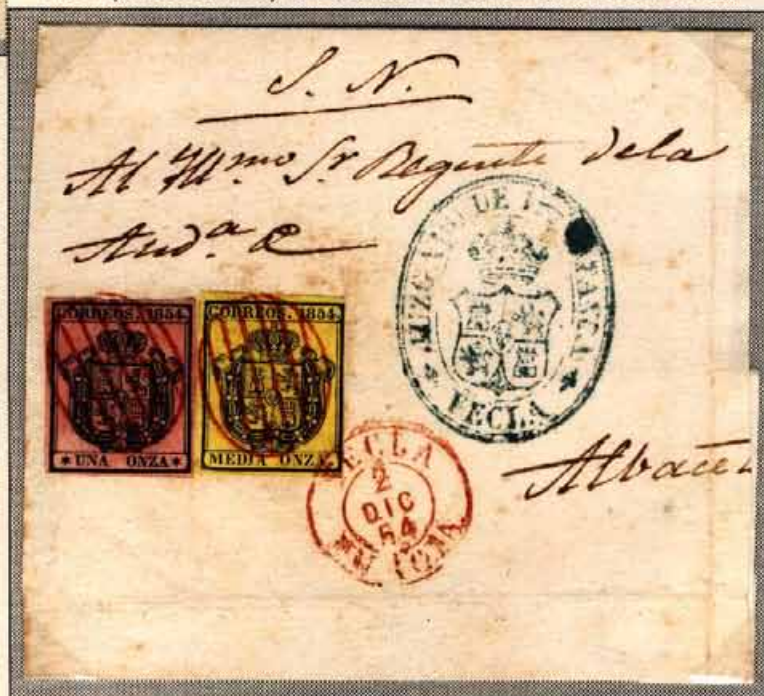 S. N.
Al Yllmo Sr Regente dela
Auda
JUZGADO DE
YECLA
CORREOS. 1854.
* UNA ONZA *
CORREOS. 1854.
MEDIA ONZA
YECLA
2
DIC
54
Albacete